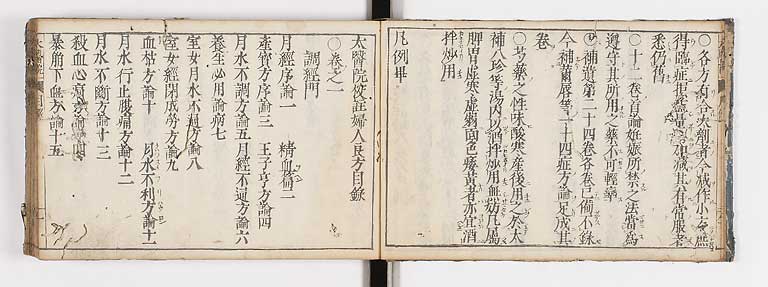 ○各方有合大劑者今減作小全庶
得臨症拒盡量加減其有常服者
悉仍舊
○十二卷首論妊娠所禁之法當爲
遵守其所用之藥不可輕
○補遺第二十四卷各卷已備不錄
今補繭唇等二十四症方論足成其
卷
○芍藥之性味酸寒產後用之於大
補八珍等湯內以酒拌炒用無妨凡屬
脾胃虛寒虛弱面色痿黃者亦宜酒
拌炒用
凡例畢
太醫院校註婦人良方目錄
○卷之一
調經門
月經序論一 精血論二
產寶方序論三 王子亨方論四
月水不調方論五 月經不通方論六
養生必用論病七
室女月水不通方論八
室女經閉成勞方論九
血枯方論十 月水不利方論十一
月水行止腹痛方論十二
月水不斷方論十三
殺血心痛方論十四
暴崩下血方論十五